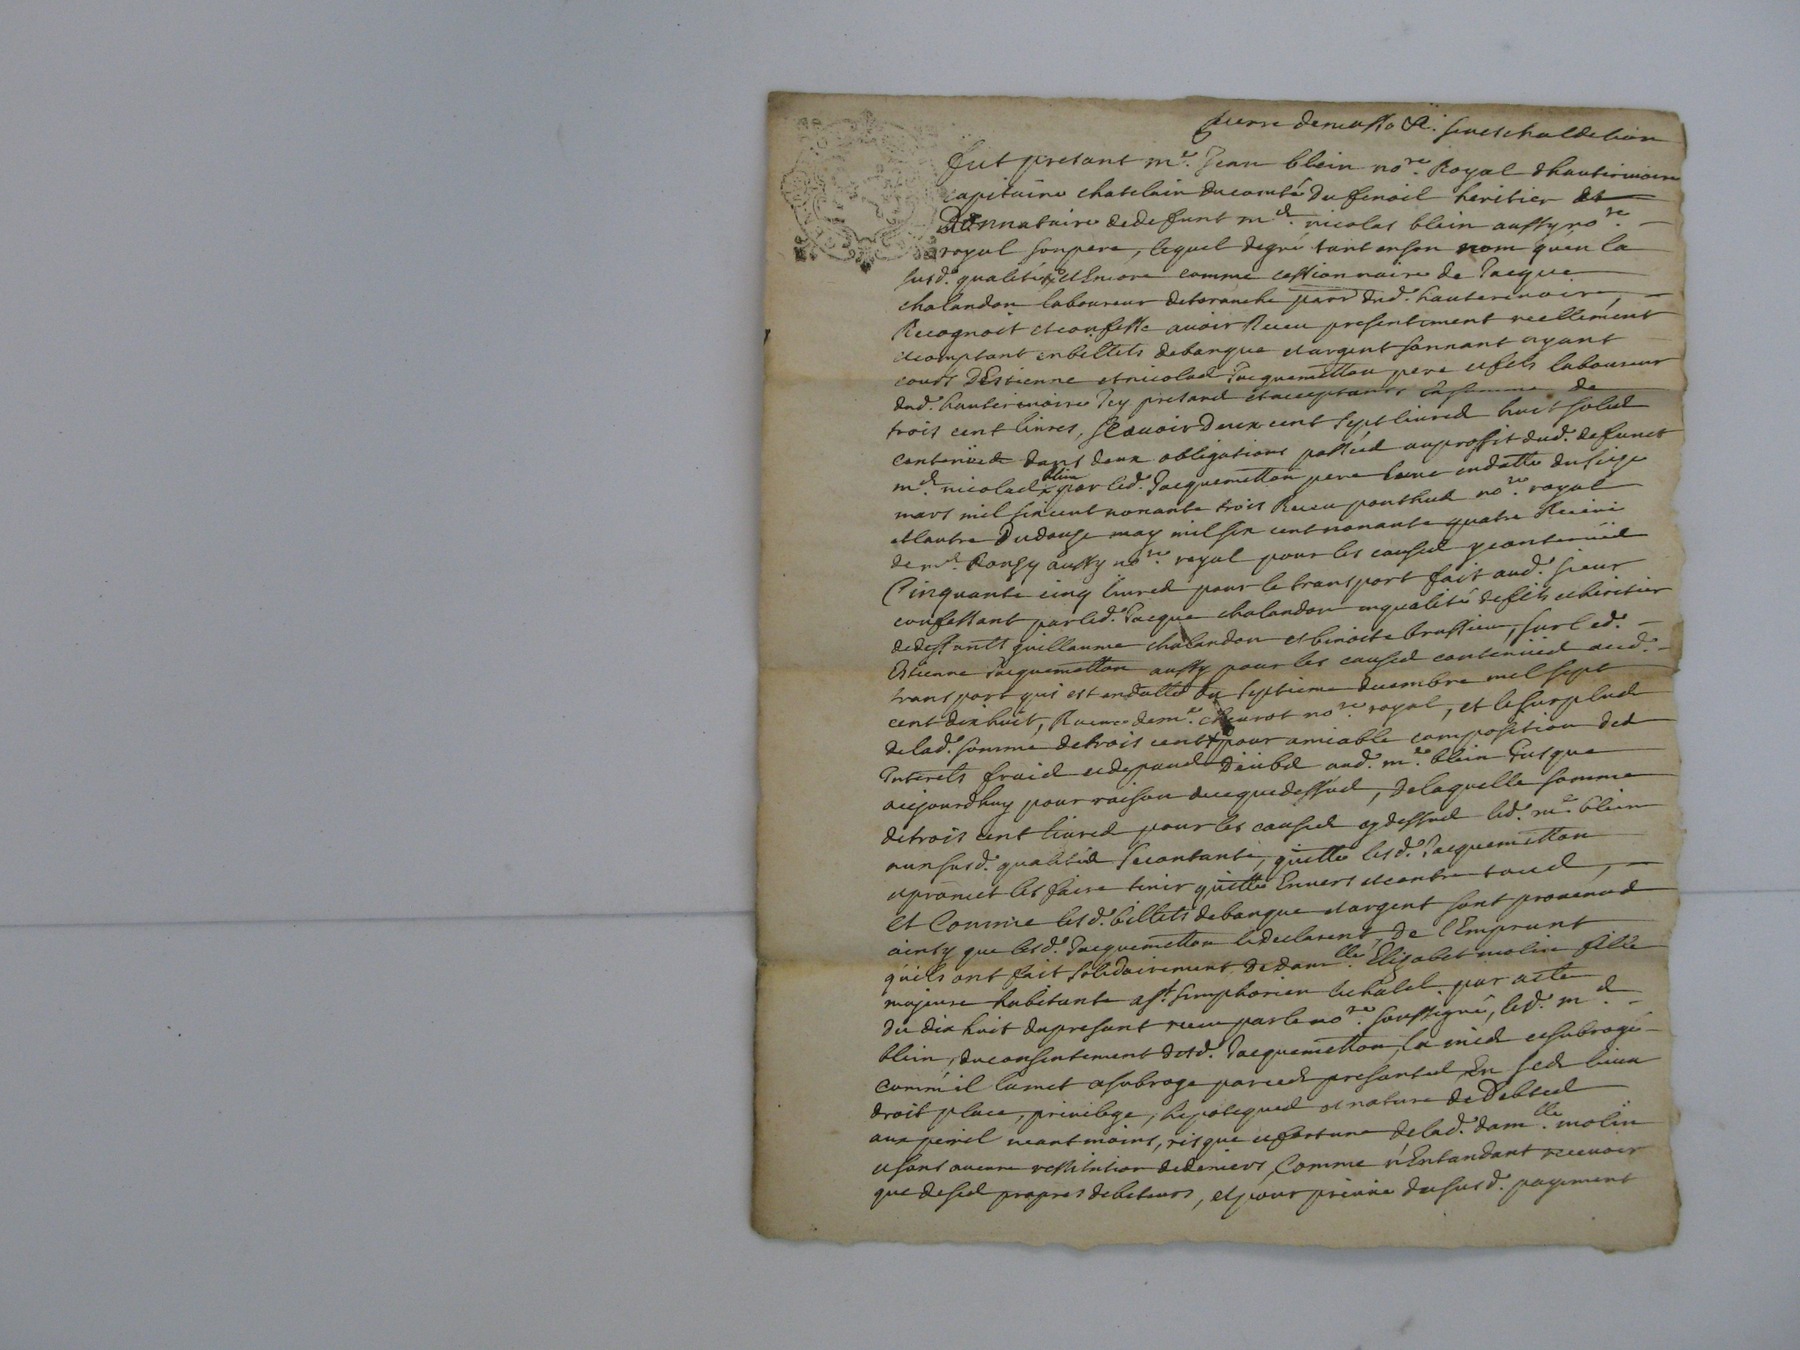 pierre demasso &c. seneschal de lion
fut presant me. Jean blein nore. Royal d'hauterivoire
capitaine chatelain du comté du fenoil heritier et
Donnataire de defunt me. nicolas blein aussy nore.
royal son pere, lequel de gré tant en son nom qu'en la
susd. qualité et Encore comme cessionnaire de Jacque
chalandon laboureur de parr dud. hauterivoire,
Recognoit et confesse avoir Receu presentement reellement
et comptant en billets de banque et argent sonnant ayant
cours d'Estienne et nicolas Jacquemetton pere et fils laboureur
dud. hauterivoire Icy presand et acceptants la somme de
trois cent livres, scavoir Deux cent sept livres huit sols
contenues dans deux obligations passéés au proffit dud. defunct
me. nicolas blein par led. Jacquemetton pere lune en datte du seize
mars mil six cent nonante trois Receu ponthus nore. royal
et lautre Du douze may mil six cent nonante quatre Receue
de me. Ronzy aussy nore. royal pour les causes y contenues
Cinquante cinq livres pour le transport fait aud. sieur
confessant par led. Jacque chalandon en qualité de fils et heritier
de deffunts guillaume chalandon et benoite brassieu, sur led.
Estienne Jacquemetton aussy pour les causes contenues aud.
transport qui est en datte du septieme decembre mil sept
cent dix huit, Receu de me. nore. royal, et le surplus
de lad. somme de trois cent pour amiable composition des
Interets frais et depans deubs aud. me. blein Jusque
aujourdhuy pour raison de ce que dessus, de laquelle somme
de trois cent livres pour les causes cy dessus led. me. blein
aux susd. qualités se contante, quitte lesd. Jacquemetton
et promet les faire tenir quittes Envers et contre tous,
Et Comme lesd. billets de banque et argent sont provenus
ainsy que lesd. Jacquemetton le declarent, De l'Emprunt
qu'ils ont fait solidairement De damlle. Elizabet molin fille
majeure habitante a st. simphorien le chatel par acte
du dix huit du presant receu par le nore. soussigné, led. me.
blein, du consentement desd. Jacquemetton, la mise et subrogé
comme il la met et subroge par ces presantes En ses lieu
droit place, privilege, hipoteques et nature de Debtes
aux peril neantmoins, risque et fortune de lad. damlle. molin
et sans aucune restitution de deniers, Comme n'Entandant recevoir
que de ses propres debiteurs, et pour preuve du susd. payement